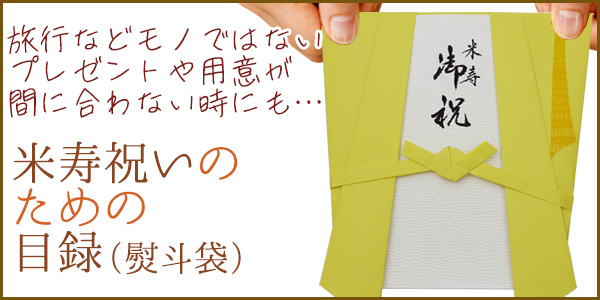 旅行などモノではない
プレゼントや用意が
間に合わない時にも…
米寿祝いの
ための
目録(熨斗袋)
米寿
御祝